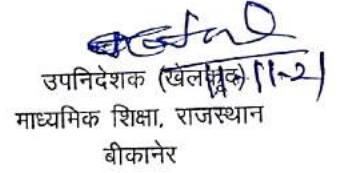 उपनिदेशक (खेलकूद) 11-11-21
माध्यमिक शिक्षा, राजस्थान
बीकानेर